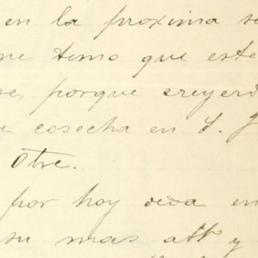 en la proxima se
me temo que este
se, porque creyend
e cosecha en S. J
Otre.
por hoy
su mas att y